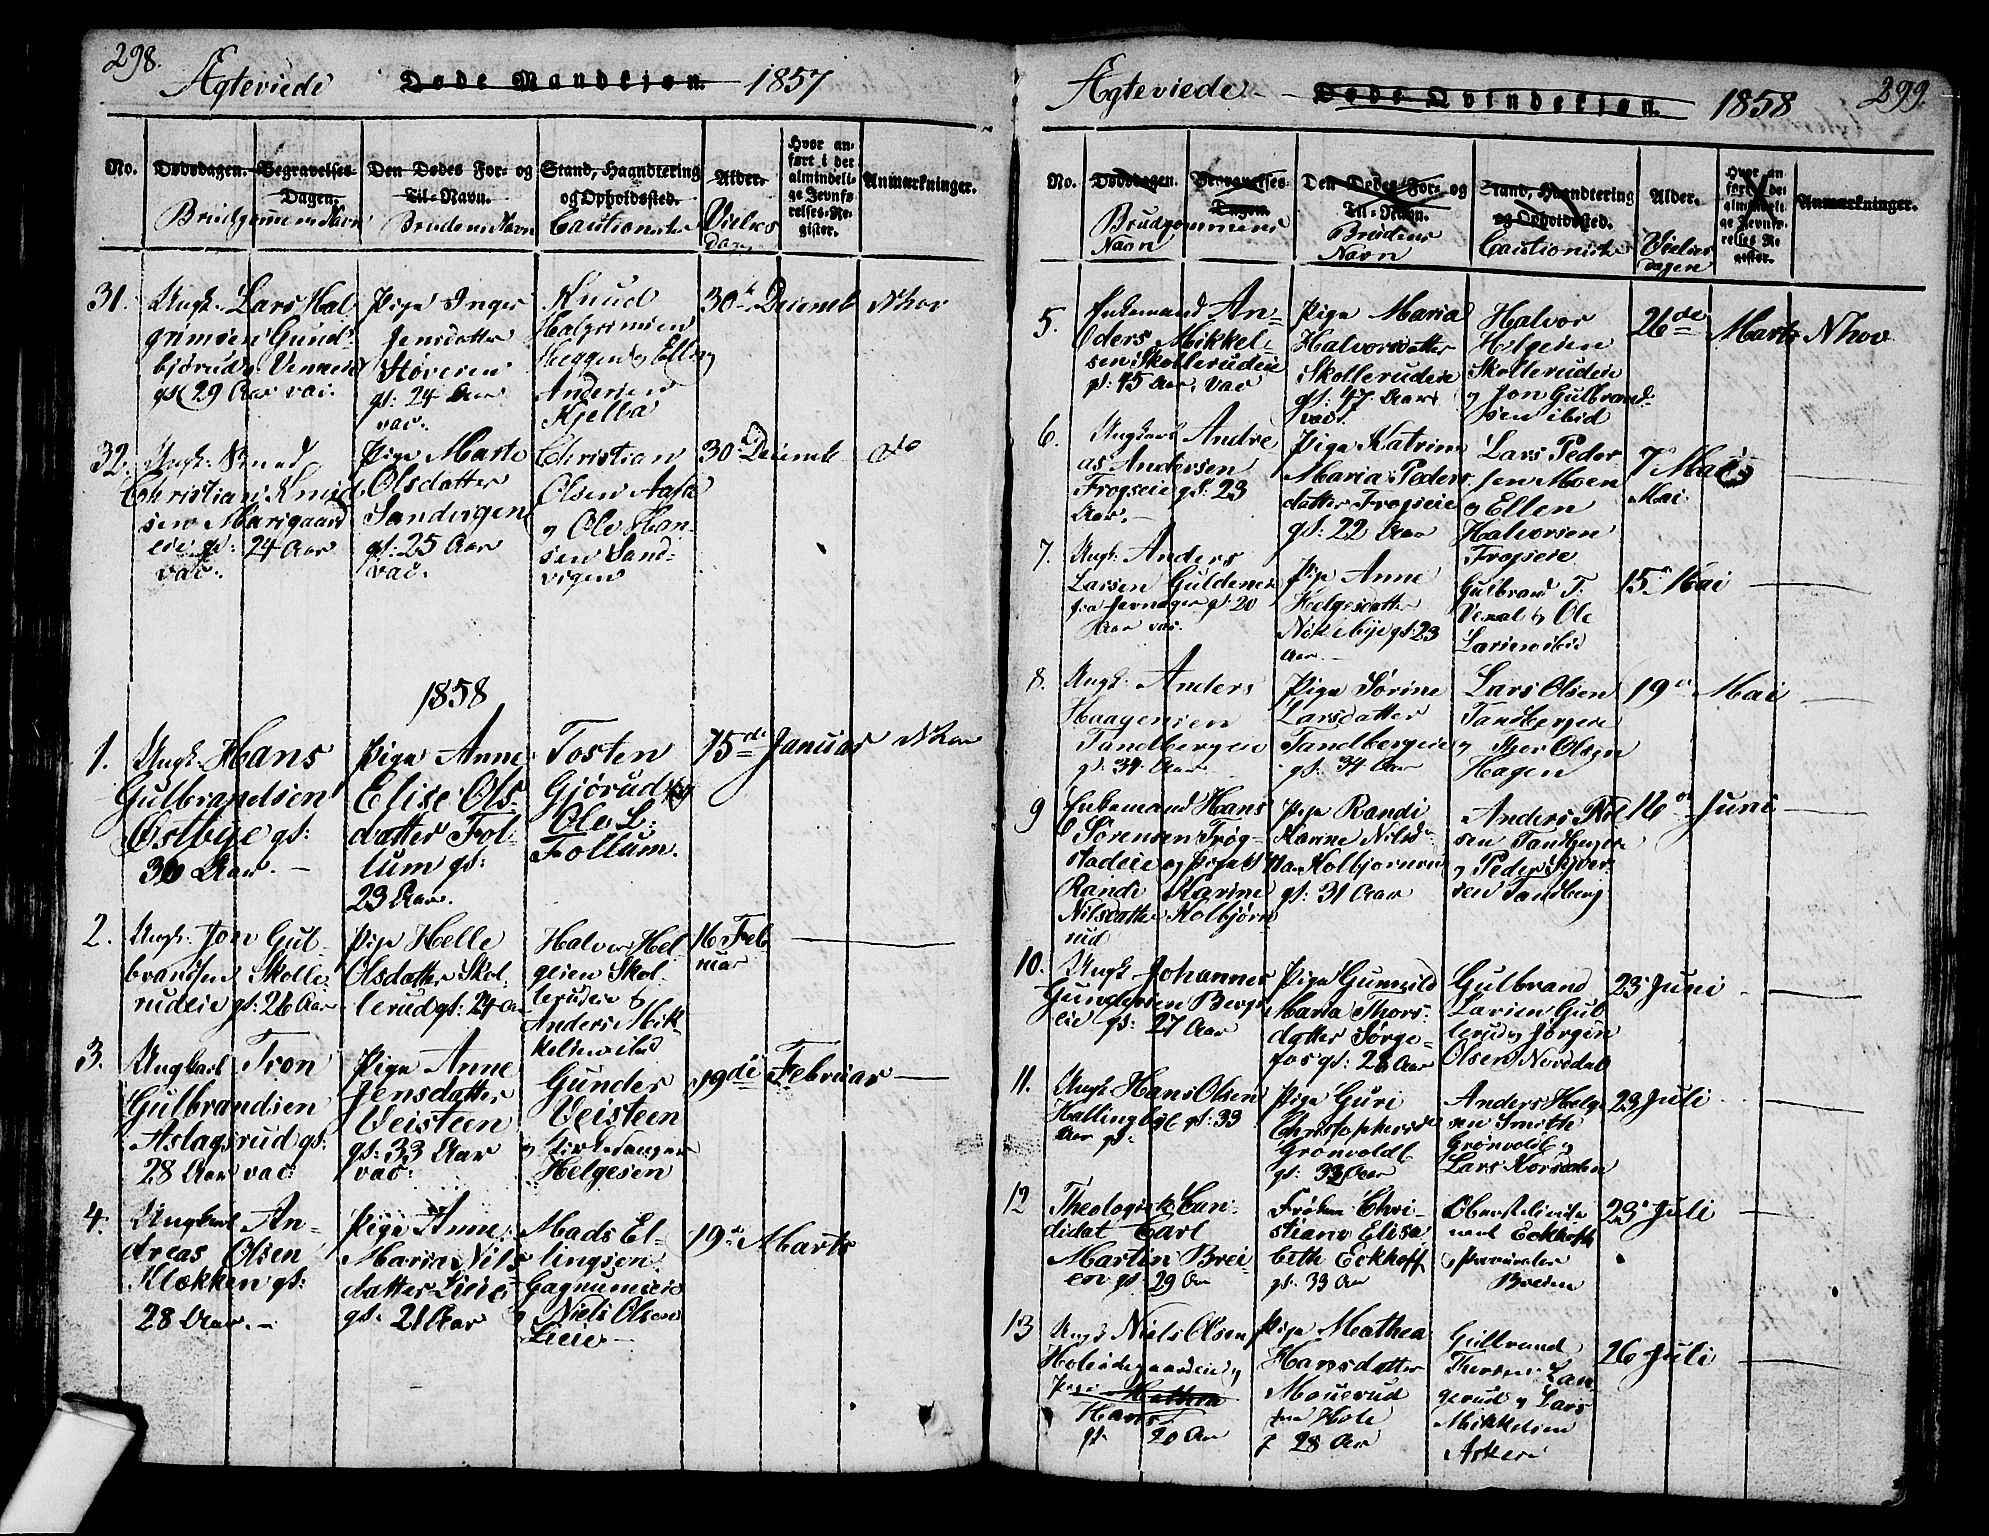 298.
Ægteviede Døde Mandkjøn. 1857
No.
Dødsdagen.
Begravelses-
Dagen.
Brudgommens Navn
Den Dødes For- og
Til-Navn.
Brudens Navn
Stand, Haandtering
og Opholdssted.
Cautionister
Alder.
Vielses
Dag
Hvor an-
ført i det
almindeli-
ge Jevnfø-
relses-Re-
gister.
Anmærkninger.
31.
Ungk. Lars Hal
grimsen Gund-
bjørud
gl: 29 Aar vac.
Pige Inger
Jensdatter
Støveren
gl: 24 Aar
vac.
Knud
Halgrimsen
Heggen og Elling
Andersen
Kjelba
30te Decemb
Nhov
32.
Ungk: Knud
Christian Knud
sen Morigaard
eie gl: 24 Aar
vac:
Pige Marte
Olsdatter
Sandvigen
gl: 25 Aar
vac.
Christian
Olsen Aasa
og Ole Han-
sen Sand-
vigen
30 Decemb
do
1858
1.
Ungk. Hans
Gulbrandsen
Østbye gl:
36 Aar. -
Pige Anne
Elise Ols-
datter Fol-
lum gl:
23 Aar.
Tosten
Gjørud og
Ole L.
Follum.
15de Januar
Nhov
2.
Ungk. Jon Gul-
brandsen Skolle
rudeie gl: 26 Aar
Pige Helle
Olsdatter Skol-
lerud gl: 24 Aar
Halvor Hel
gesen Skol
lerudeie og
Anders Mik
kelsen ibid
16 Feb
ruar
3.
Ungkarl Tron
Gulbrandsen
Aslagsrud gl:
28 Aar vac:
Pige Anne
Jensdatter
Veisteen
gl: 33 Aar
vac:
Gunder
Veisteen
og Kirkesanger
Helgesen
19de Februar
4.
Ungkarl An-
dreas Olsen
Klækken gl:
28 Aar. -
Pige Anne
Maria Nils
datter Lieie
gl: 21 Aar
Mads El-
lingsen
Gagnumeie
og Niels Olsen
Lieie -
19de Marts
299.
Ægteviede Døde Qvindekjøn. 1858
No.
Dødsdagen.
Begravelses-
Dagen.
Brudgommens
Navn
Den Dødes For- og
Til-Navn.
Brudens
Navn
Stand, Haandtering
og Opholdssted.
Cautionister
Alder.
Vielses
dagen
Hvor an
ført i det
almindeli
ge Jevnfø-
relses Re
gister.
Anmærkninger.
5.
Enkemand An-
ders Mikkel-
sen Skollerudeie
gl: 45 Aar, vac
Pige Maria
Halvorsdatter
Skollerudeie
gl: 47 Aar
vac.
Halvor
Helgesen
Skollerudeie
og Jon Gulbrand
sen ibid
26de Marts
Nhov
6.
Ungkarl Andre
as Andersen
Frogseie gl: 23
Aar. -
Pige Katrine
Maria Peders
datter Frogseie
gl: 22 Aar
Lars Peder
sen Moen
og Ellen
Halvorsen
Frogseie
7de Mai
Mai
7.
Ungk: Anders
Larsen Guldenei
fra Jevnager gl: 20
Aar vac.
Pige Anne
Helgesdatter
Nikebye gl: 23
Aar. -
Gulbrand T.
Vexal og Ole
Larsen ibid
15de Mai
8.
Ungk. Anders
Haagensen
Tandbergeie
gl. 34 Aar
Pige Sørine
Larsdatter
Tandbergeie
gl: 34 Aar
Lars Olsen
Tandbergeie
og Iver Olsen
Hagen
19de Mai
9
Enkemand Hans
Sørensen Frøg-
stadeie og Pige
Randi Karine
Nilsdatter Kolbjørn
rud
Pige Randi
Karine Nilsd.
Kolbjornrud
gl: 31 Aar
Anders Niel
sen Tandbergeie
og Peder Syver
sen Tandberg
16de Juni
10.
Ungk Johannes
Gundersen Bergs
eie gl: 27 Aar
Pige Gunnild
Maria Thors-
datter Sørge-
fos gl: 28 Aar
Gulbrand
Larsen Gul
lerud og Jørgen
Olsen Norddal
23de Juni
11.
Ungk. Hans Olsen
Hallingbye gl: 33
Aar gl:
Pige Guri
Christophersd
Grønvoldt
gl: 33 Aar
Anders Helge
sen Smitte
Grønvold og
Lars Korsdalen
23 Juli
12
Theologisk Can
didat Carl
Martin Brei-
en gl. 29 Aar
Frøken Chri
stiane Elisa
beth Eckhoff
gl: 33 Aar
Oberstlieute
nant Eckhoff
og Procurator
Breien
23de Juli
13
Ungk Niels Olsen
Holesødegaardeie og
Pige Mathea
Hans
gl. 20 Aar
Pige Mathea
Hansdatter
Mouerud
fra Hole
28 Aar
Gulbrand
Thersen Lan
gerud og Lars
Mikkelsen
Askeri
26 Juli